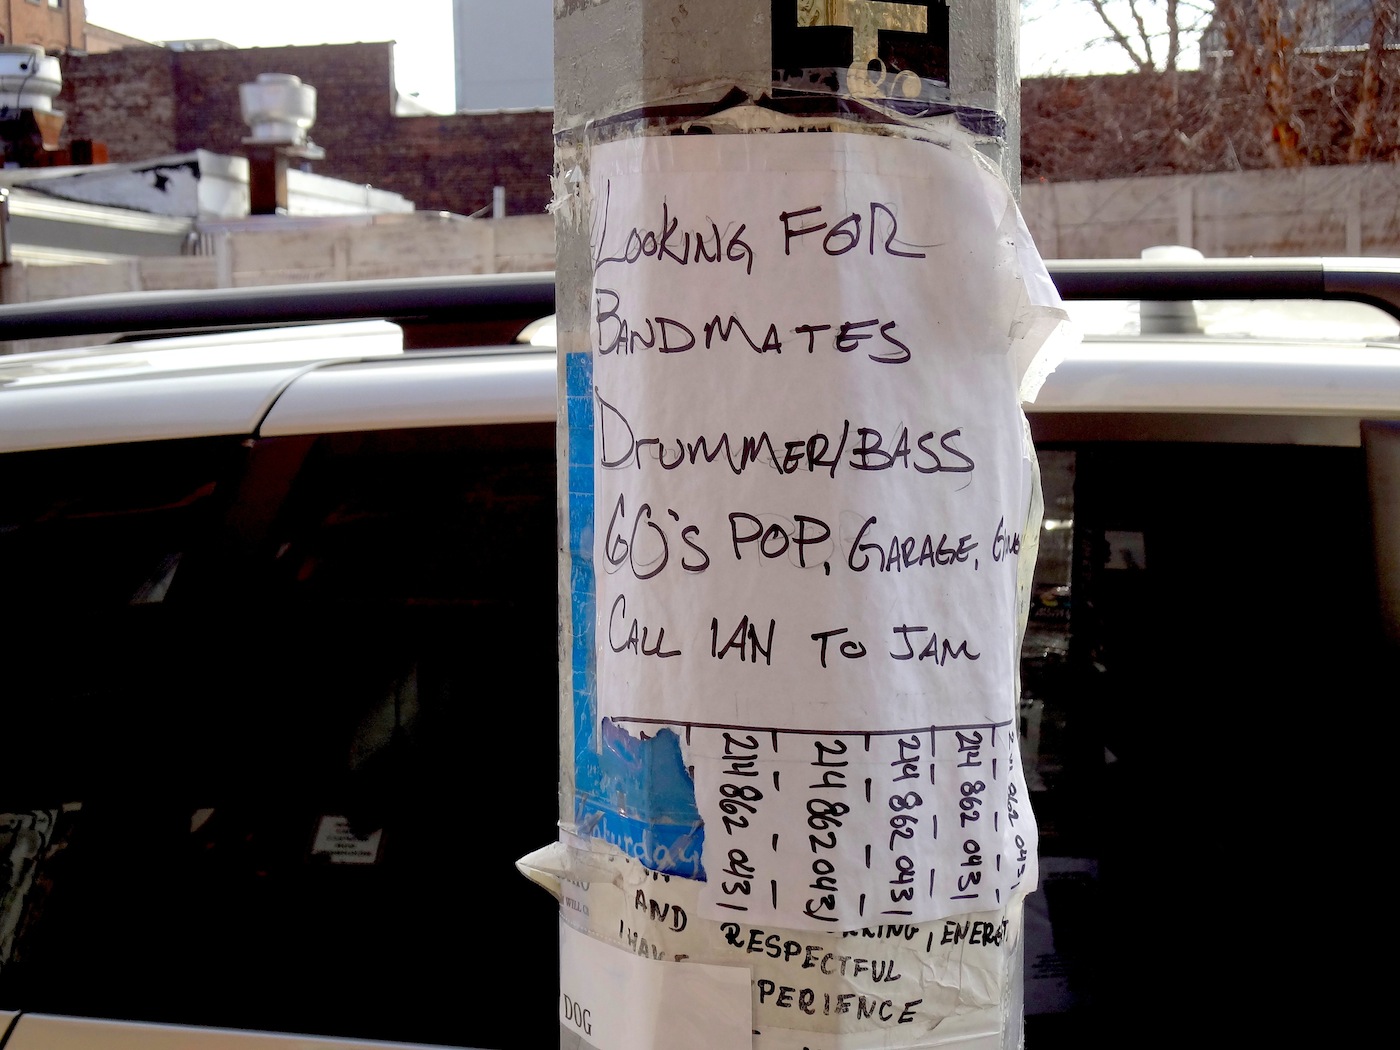 LOOKING FOR
BANDMATES
DRUMMER/BASS
60'S POP, GARAGE,
CALL IAN TO JAM
214 862 0431
214 862 0431
214 862 0431
214 862 0431
214 862 0431
Saturday
AND
RESPECTFUL
I HAVE
DOG